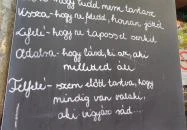 hogy tudd nem tartasz
Vissza - hogy ne feledd, honnan jöttél
Lefelé - hogy ne taposs el senkit
Oldalra - hogy lásd, ki az, aki
melletted áll
Felfelé - szem előtt tartva, hogy
mindig van valaki,
aki vigyáz rád...